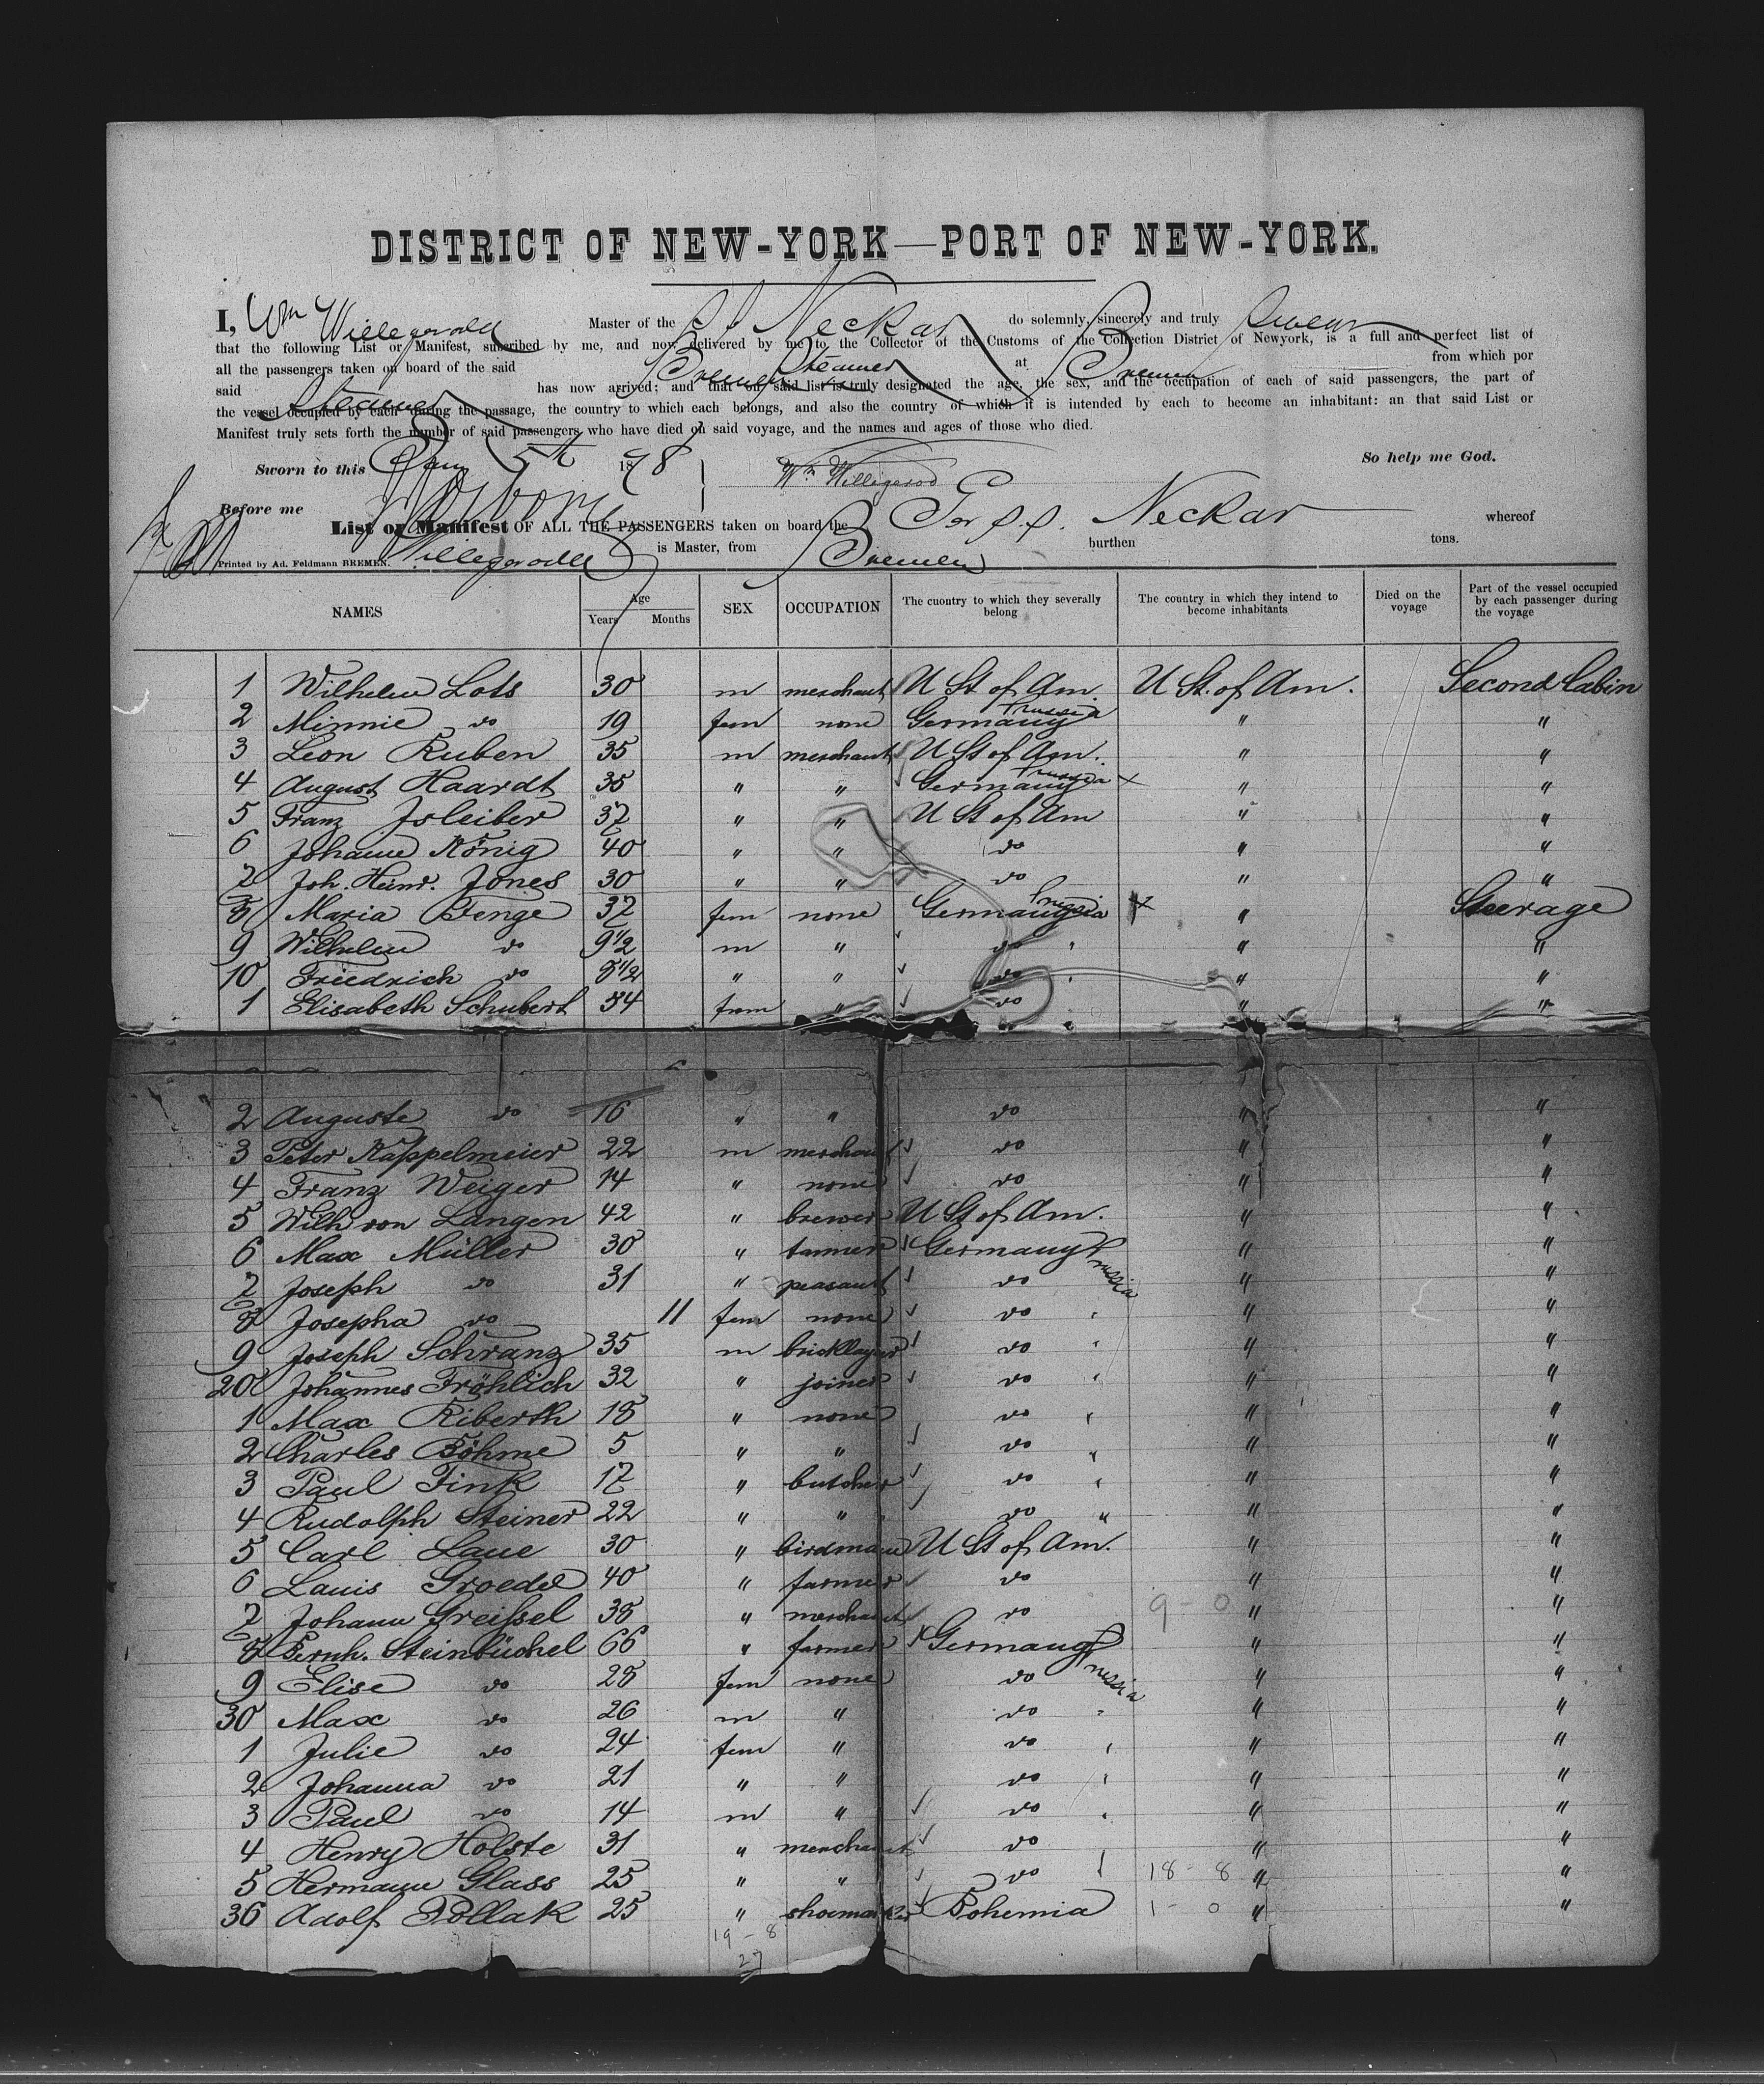 DISTRICT OF NEW-YORK—PORT OF NEW-YORK.
I, Wm Willegerodt Master of the S S Neckar do solemnly, sincerely and truly swear
that the following List or Manifest, subcribed by me, and now delivered by me to the Collector of the Customs of the Collection District of Newyork, is a full and perfect list of
all the passengers taken on board of the said Steamer at Bremen from which por
said Steamer has now arrived; and that on said list is truly designated the age, the sex, and the occupation of each of said passengers, the part of
the vessel occupied by each during the passage, the country to which each belongs, and also the country of which it is intended by each to become an inhabitant: an that said List or
Manifest truly sets forth the number of said passengers who have died on said voyage, and the names and ages of those who died.
Sworn to this Jany 5th 1878 So help me God.
Wm Willigerod
Before me
List or Manifest OF ALL THE PASSENGERS taken on board the Ger S.S. Neckar whereof
Willegerodt is Master, from Bremen burthen tons.
Printed by Ad. Feldmann BREMEN.
NAMES Age Years Months SEX OCCUPATION The cuontry to which they severally belong The country in which they intend to become inhabitants Died on the voyage Part of the vessel occupied by each passenger during the voyage
1 Wilhelm Lots 30 m merchant U St of Am. U St. of Am. Second Cabin
2 Minnie do 19 fem none Germany Prussia " "
3 Leon Ruben 35 m merchant U St of Am. " "
4 August Haardt 35 " " Germany Prussia " "
5 Franz Isleiber 37 " " U St of Am " "
6 Johann König 40 " " do " "
7 Joh. Heinr. Jones 30 " " do " "
8 Maria Fenge 37 fem none Germany Prussia " Steerage
9 Wilhelm do 9 1/2 m " do " "
10 Friedrich do 8 1/2 " " do " "
1 Elisabeth Schubert 54 fem " do " "
2 Auguste do 16 " " do " "
3 Peter Kappelmeier 22 m merchant do " "
4 Franz Weiger 14 " none do " "
5 Wilh von Langen 42 " brewer U St of Am. " "
6 Max Müller 30 " tanner Germany Prussia " "
7 Joseph do 31 " peasant do " "
8 Josepha do 11 fem none do " "
9 Joseph Schranz 35 m bricklayer do " "
20 Johannes Fröhlich 32 " joiner do " "
1 Max Riberth 18 " none do " "
2 Charles Böhme 5 " " do " "
3 Paul Fink 17 " butcher do " "
4 Rudolph Steiner 22 " " do " "
5 Carl Laue 30 " birdman U St of Am. " "
6 Lauis Groedel 40 " farmer do " "
7 Johann Greissel 38 " merchant do 9 - 0 " "
8 Bernh. Steinbüchel 66 " farmer Germany Prussia " "
9 Elise do 28 fem none do " "
30 Max do 26 m " do " "
1 Julie do 24 fem " do " "
2 Johanna do 21 " " do " "
3 Paul do 14 m " do " "
4 Henry Holste 31 " merchant do " "
5 Hermann Glass 25 " " do 18 - 8 " "
36 Adolf Pollak 25 " shoemaker Bohemia 1 - 0 " "
19 - 8
27